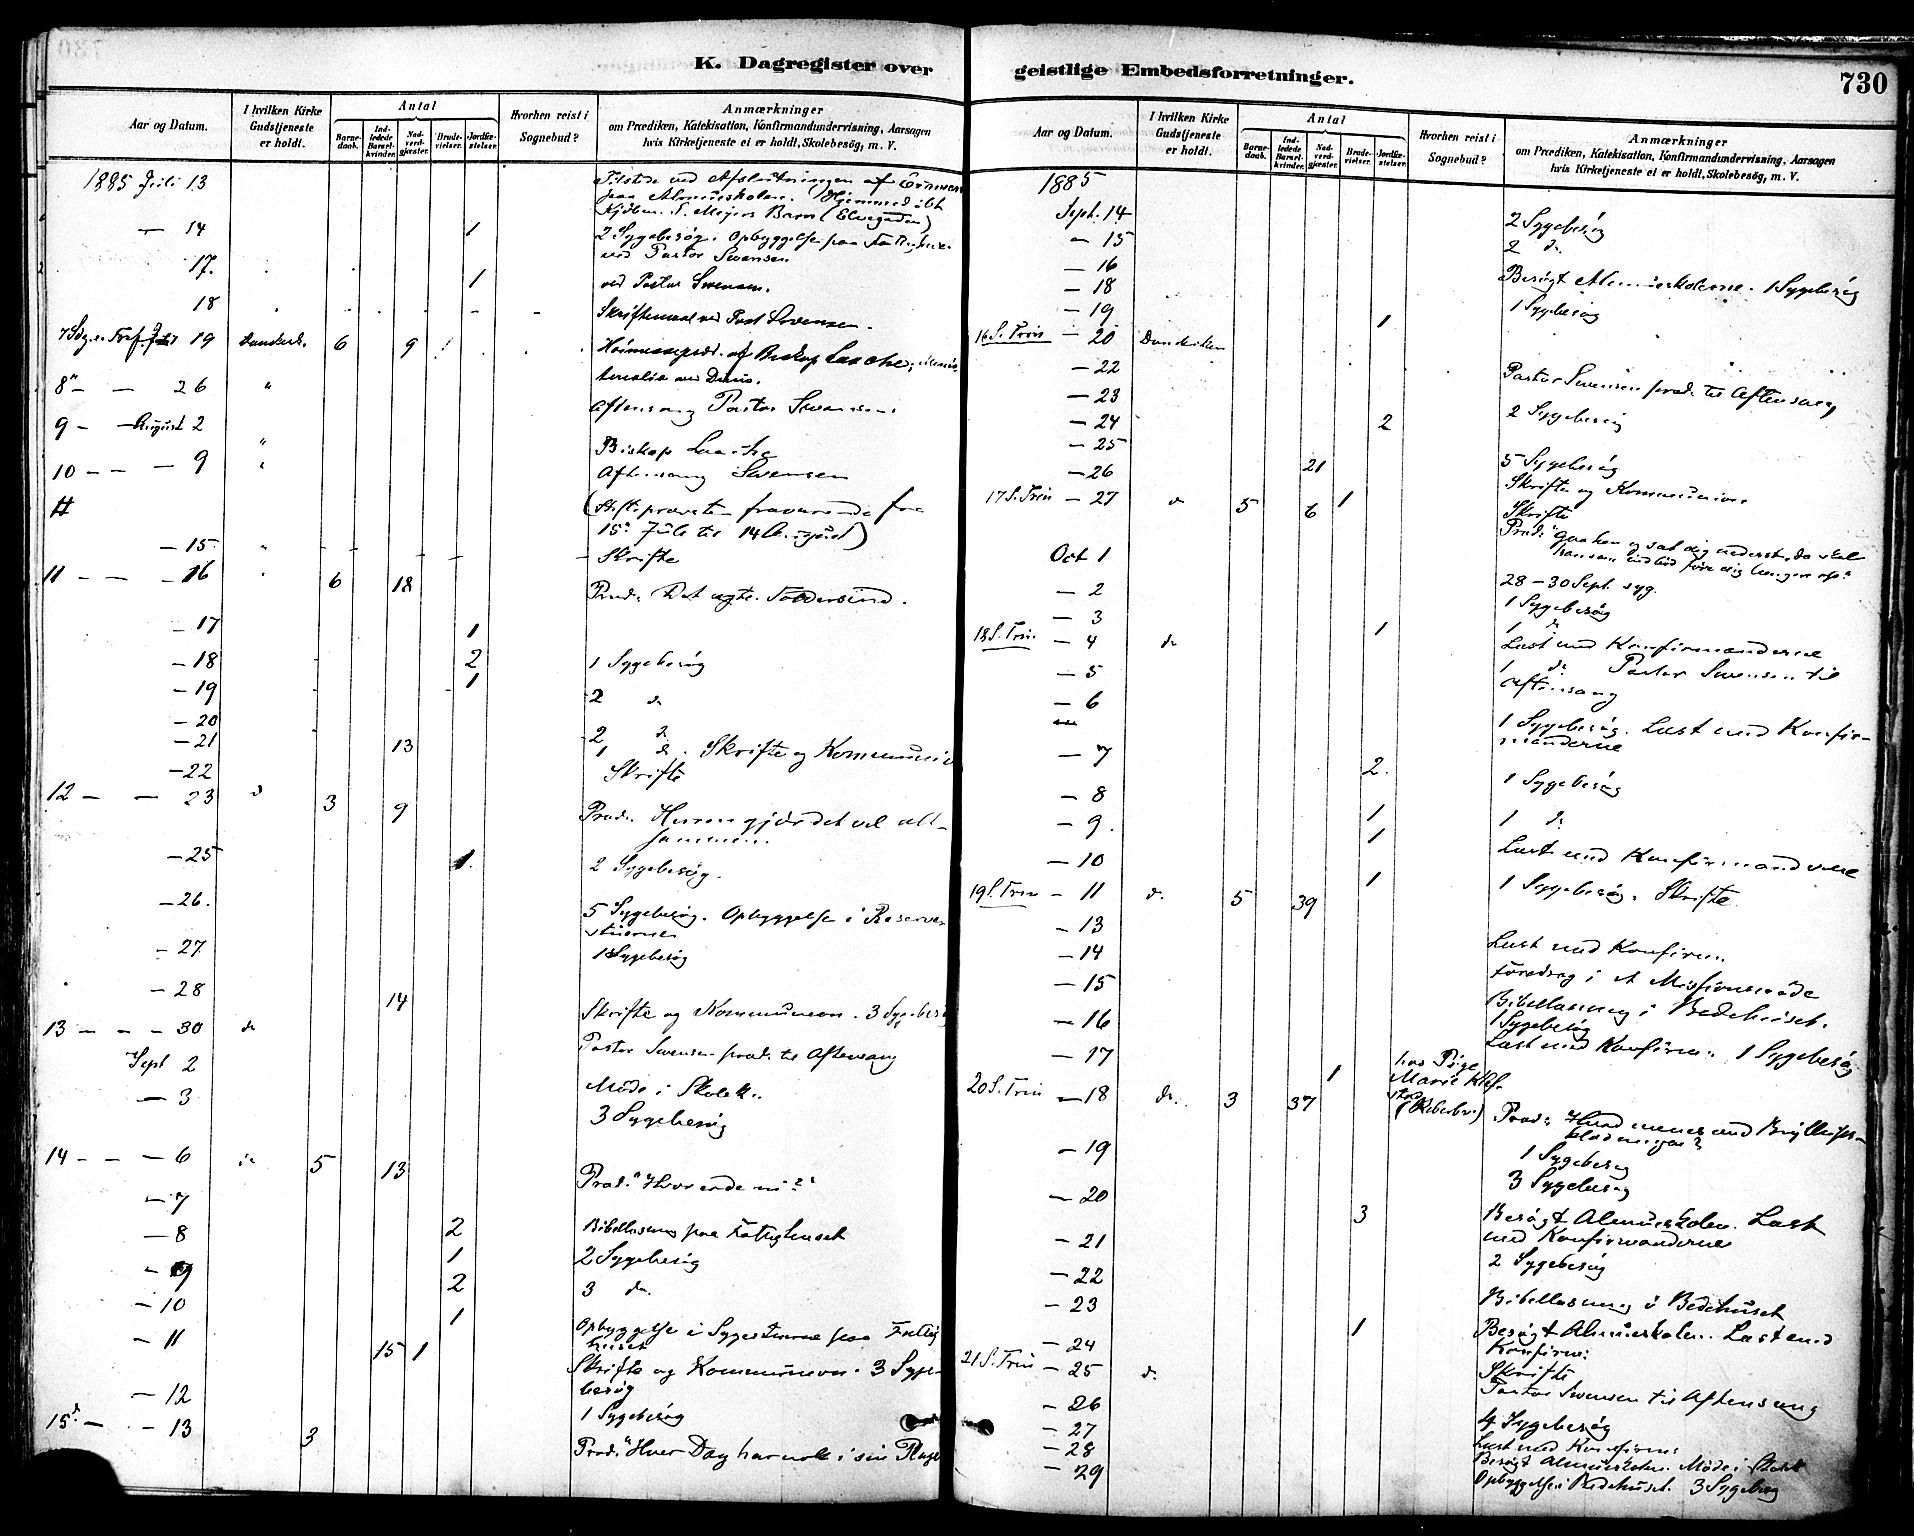 K. Dagregister over
geistlige Embedsforretninger.
730
Aar og Datum.
I hvilken Kirke Gudstjeneste er holdt.
Antal
Barnedaab.
Indledede Barselkvinder.
Nadverdgjæster.
Brudevielser.
Jordfæstelser.
Hvorhen reist i Sognebud?
Anmærkninger
om Prædiken, Katekisation, Konfirmandundervisning, Aarsagen
hvis Kirketjeneste ei er holdt, Skolebesøg, m. V.
1885 Juli 13
Tilstede ved Afslutningen af
paa Almueskolen. Hjemmedøbt
Kjøbm. S. Meyers Barn (Elvegaden)
— 14 1 2 Sygebesøg. Opbyggelse paa
ved Pastor Svensen
17. 1 ved Pastor Svensen.
18 Skriftemaal ved Past Svensen.
19 Domkirk. 6 9 Høimessepræd. af Biskop Laache;
8 — — 26 "
Aftensang Pastor Svensen
9 — — August 2 "
Biskop Laache
10 — — — 9 " Aftensang Svensen
# (Stiftsprovsten fraværende fra
15 Juli til 14 August)
— 15 Skrifte
11 — — — 16 6 18 Præd:
— 17 1
— 18 2 1 Sygebesøg
— 19 1 2 d
— 20 2 d
— 21 13 1 d. Skrifte og Kommunion
— 22 Skrifte
12 — — 23 d 3 9 Præd: Herren gjør det vel alt-
sammen.
— 25 1. 2 Sygebesøg.
— 26. 5 Sygebesøg. Opbyggelse i Reserve
stuerne
— 27 1 Sygebesøg
— 28 14 Skrifte og Kommunion. 3 Sygebesøg
13 — — — 30 do Pastor Svensen præd: til Aftensang
Sept 2 Møde i Skolek.
— 3 3 Sygebesøg
14 — — — 6 do 5 13 Præd: "Hvor ere de ni?"
— 7 2 Bibellæsning paa Fattighuset
— 8 1 2 Sygebesøg
— 9 2 3 do.
— 10 1 Opbyggelse i Sygestuerne paa Fattig
huset
— 11 15 1 Skrifte og Kommunion. 3 Syge-
besøg
— 12 1 Sygebesøg
15 — — 13 3 Præd: "Hver Dag har nok i sin Plage
Aar og Datum.
I hvilken Kirke Gudstjeneste er holdt.
Antal
Barnedaab.
Indledede Barselkvinder.
Nadverdgjæster.
Brudevielser.
Jordfæstelser.
Hvorhen reist i Sognebud?
Anmærkninger
om Prædiken, Katekisation, Konfirmandundervisning, Aarsagen
hvis Kirketjeneste ei er holdt, Skolebesøg, m. V.
1885
Sept. 14 2 Sygebesøg
— 15 2 do
— 16 Besøgt Almueskolerne. 1 Sygebesøg
— 18 1 Sygebesøg
— 19 1
16 S. Trin — 20 Domkirken Pastor Svensen præd: til Aftensang
— 22 2 Sygebesøg
— 23
— 24 2 5 Sygebesøg
— 25
— 26 21 Skrifte og Kommunion
Skrifte
17 S. Trin — 27 do 5 6 1 Præd:
28–30 Sept. syg.
Oct 1 1 Sygebesøg
— 2 1 do
— 3 1 Læst med Konfirmanderne
18 S. Trin — 4 do 1 do Pastor Svensen til
Aftensang
— 5 1 Sygebesøg. Læst med Konfir-
manderne
— 6
— 7 2. 1 Sygebesøg
— 8 1 1 do
— 9. 1 Læst med Konfirmanderne
— 10 1 1 Sygebesøg. Skrifte
19 S. Trin — 11 do. 5 39
— 13 Læst med Konfirm.
— 14 Foredrag i et Missionsmøde
— 15 Bibellæsning i Bedehuset.
— 16 1 Sygebesøg
— 17 1 Læst med Konfirm: 1 Sygebesøg
hos Pige
Marie
20 S. Trin — 18 do. 3 37 Præd: "Hvad menes med Bryllups-
klædningen?
— 19 1 Sygebesøg
— 20 3 Sygebesøg
3 Besøgt Almueskolen. Læst
— 21 med Konfirmanderne
— 22 2 Sygebesøg
— 23 Bibellæsning i Bedehuset
— 24 1 Besøgt Almueskolen. Læst med
Konfirm:
Skrifte
21 S. Trin — 25 do. Pastor Svensen til Aftensang
— 26 4 Sygebesøg
— 27 Læst med Konfirm:
— 28 Besøgt Almueskolen. Møde i
— 29 Opbyggelse i Bedehuset. 3 Sygebesøg